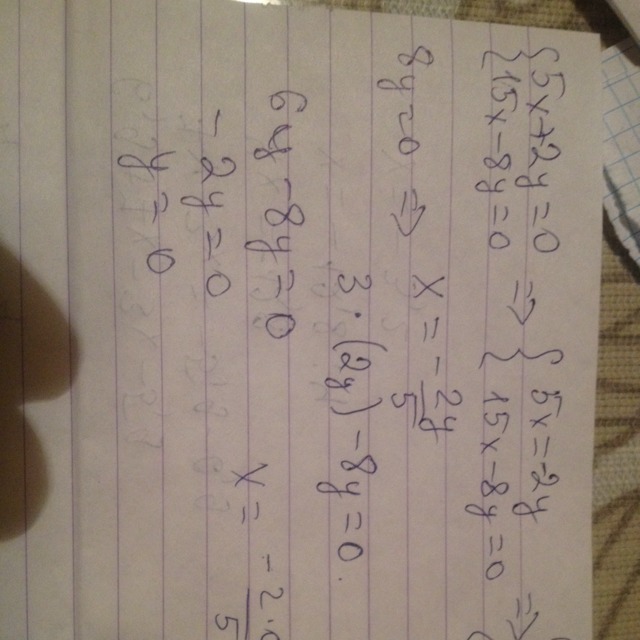 { 5x+2y=0 ⇒ { 5x=-2y ⇒
{ 15x-8y=0 { 15x-8y=0
8y=0 ⇒ x = - 2y/5
3·(2y)-8y=0.
6y-8y=0
-2y=0 x=
y=0